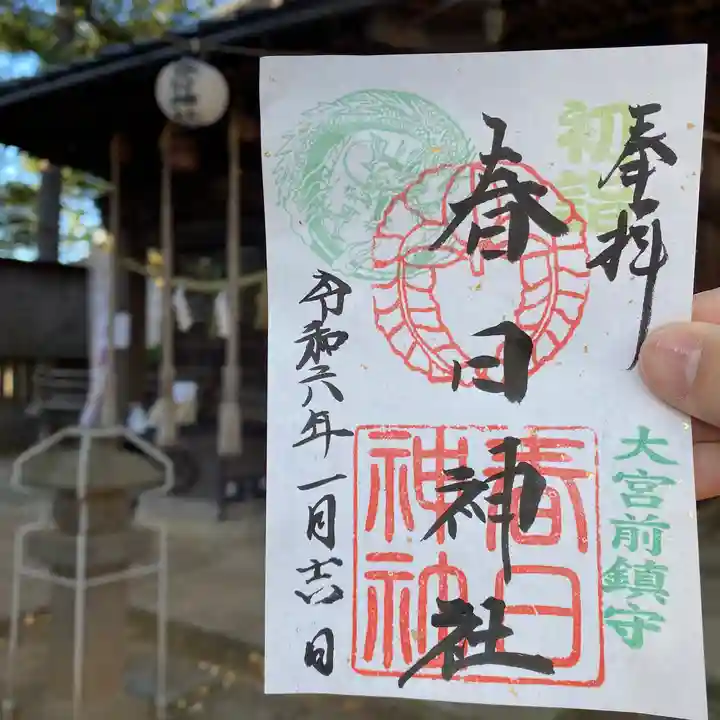 奉拝
初詣
大宮前鎮守
春日神社
春日
神社
令和六年一月吉日